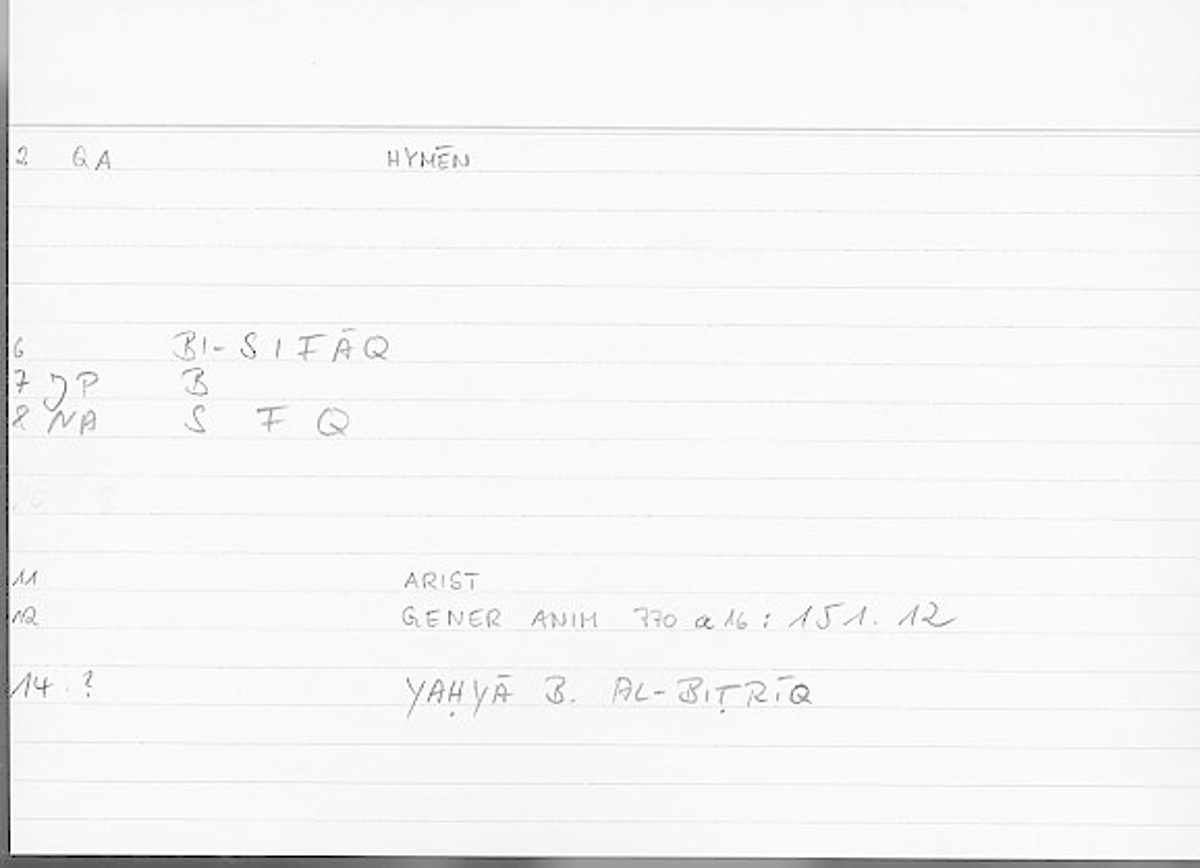 2 QA HYMĒN
6 BI-SIFĀQ
7 JP B
8 NA S F Q
10
11 ARIST
12 GENER ANIM 770 a 16 : 151. 12
14 ? YAḤYĀ B. AL-BIṬRĪQ